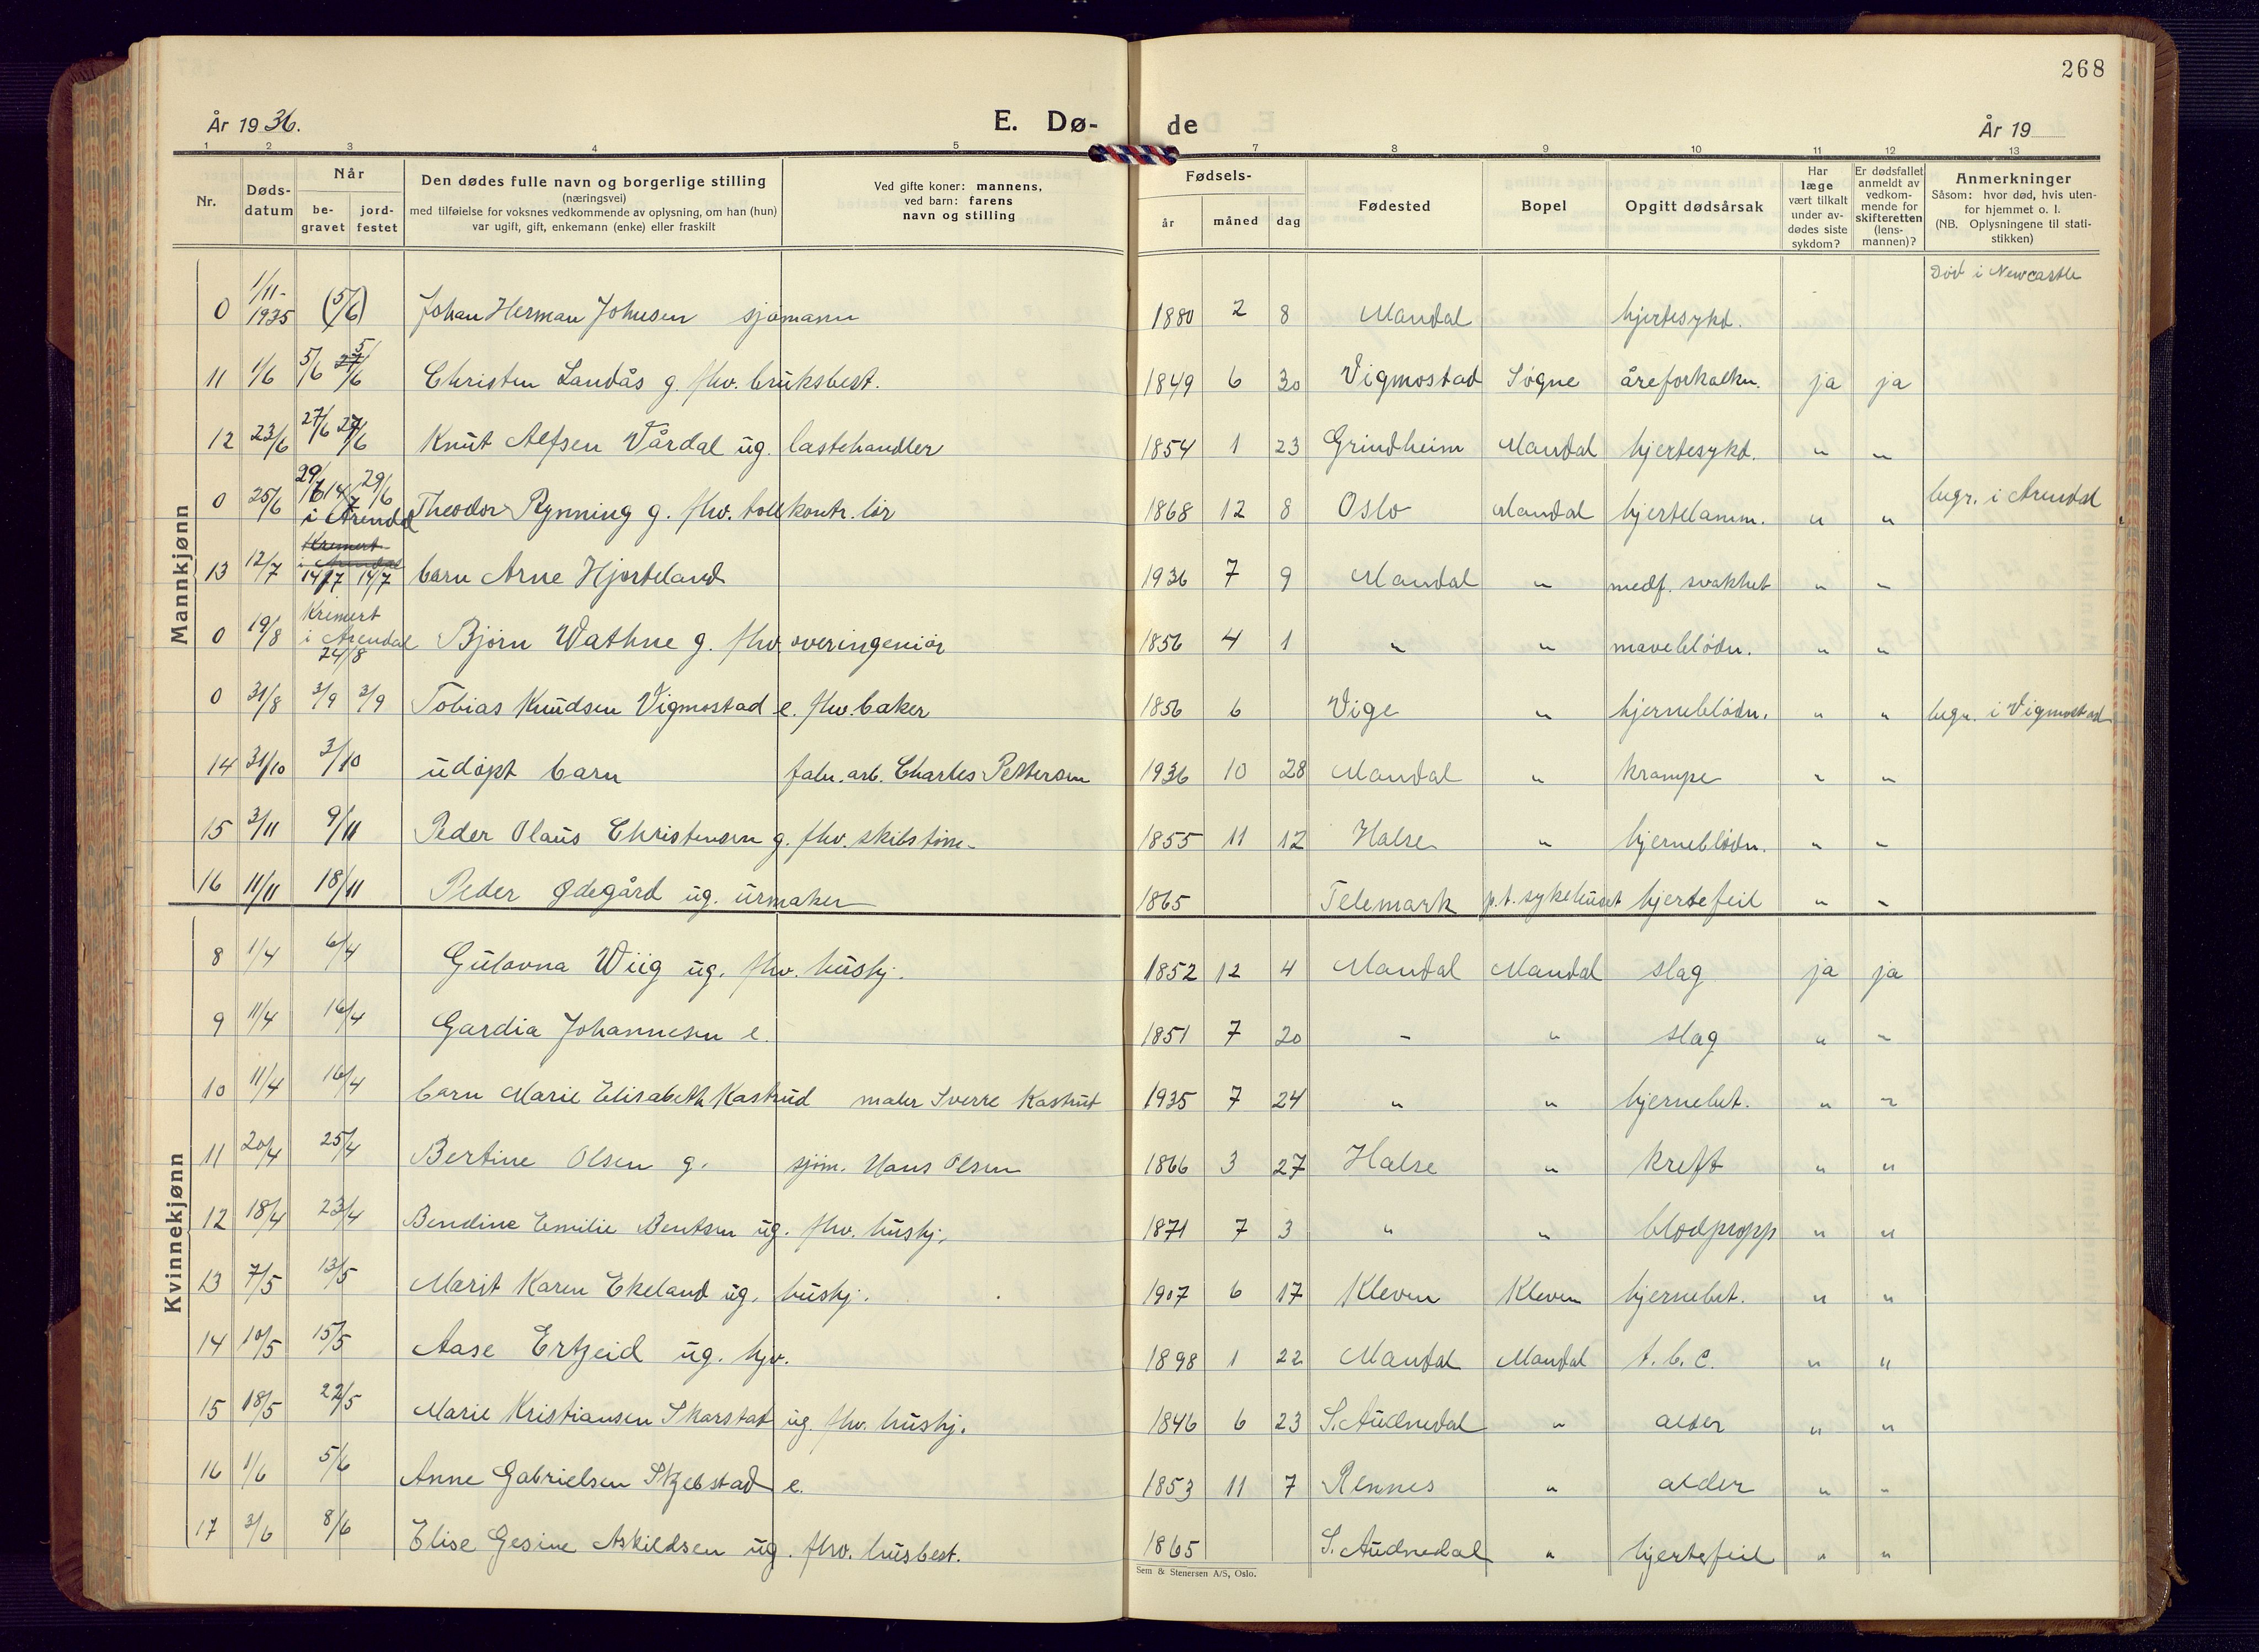 268
År 1936. E. Dø- de År 19
1 2 3 4 5 7 8 9 10 11 12 13
Nr. Døds-datum Når be-gravet jord-festet Den dødes fulle navn og borgerlige stilling (næringsvei) med tilføielse for voksnes vedkommende av oplysning, om han (hun) var ugift, gift, enkemann (enke) eller fraskilt Ved gifte koner: mannens, ved barn: farens navn og stilling Fødsels- år måned dag Fødested Bopel Opgitt dødsårsak Har læge vært tilkalt under av-dødes siste sykdom? Er dødsfallet anmeldt av vedkom-mende for skifteretten (lens-mannen)? Anmerkninger Såsom: hvor død, hvis uten-for hjemmet o. l. (NB. Oplysningene til stati-stikken)
Mannkjønn
0 1/11-1935 (5/6) Johan Herman Johnsen sjømann 1880 2 8 Mandal hjertesykd. Død i Newcastle
11 1/6 5/6 5/6 Christen Landås g. fhv. bruksbest. 1849 6 30 Vigmostad Søgne åreforkalkn. ja ja
12 23/6 27/6 27/6 Knut Alfsen Vårdal ug. lastehandler 1854 1 23 Grindheim Mandal hjertesykd. " "
0 25/6 29/6 29/6 i Arendal Theodor Rynning g. fhv. tollkontr.lør 1868 12 8 Oslo Mandal hjertelamm. " " begr. i Arendal
13 12/7 Kremert i Arendal 14/7 14/7 barn Arne Hjorteland 1936 7 9 Mandal " medf. svakhet " "
0 19/8 Kremert i Arendal 24/8 Bjørn Wathne g. fhv. overingeniør 1856 4 1 " " maveblødn. " "
0 31/8 3/9 3/9 Tobias Knudsen Vigmostad e. fhv. baker 1856 6 Vige " hjerneblødn. " " begr. i Vigmostad
14 31/10 3/10 udøpt barn fabr. arb. Charles Pettersen 1936 10 28 Mandal " krampe " "
15 3/11 9/11 Peder Olaus Christensen g. fhv. skibstøm- 1855 11 12 Halse " hjerneblødn. " "
16 11/11 18/11 Peder Ødegård ug. urmaker 1865 Telemark p.t. sykehuset hjertefeil " "
Kvinnekjønn
8 1/4 6/4 Gulovna Wiig ug. fhv. hushj. 1852 12 4 Mandal Mandal slag ja ja
9 11/4 16/4 Gardia Johannesen e. 1851 7 20 " " slag " "
10 11/4 16/4 barn Marie Elisabeth Kastrud maler Sverre Kastrud 1935 7 24 " " hjernebet. " "
11 20/4 25/4 Bertine Olsen g. sjøm. Hans Olsen 1866 3 27 Halse " kreft " "
12 18/4 23/4 Bendine Emilie Bentsen ug. fhv. hushj. 1871 7 3 " " blodpropp " "
13 7/5 13/5 Marit Karen Ekeland ug. hushj. 1907 6 17 Kleven Kleven hjernebet. " "
14 10/5 15/5 Aase Ertzeid ug. hjv. 1898 1 22 Mandal Mandal t.b.c. " "
15 18/5 22/5 Marie Kristiansen Skarstad ug. fhv. hushj. 1846 6 23 S. Audnedal " alder " "
16 1/6 5/6 Anne Gabrielsen Skjebstad e. 1853 11 7 Rennes " alder " "
17 3/6 8/6 Elise Gesine Askildsen ug. fhv. husbest. 1865 S. Audnedal " hjertefeil " "
Sem & Stenersen A/S, Oslo.